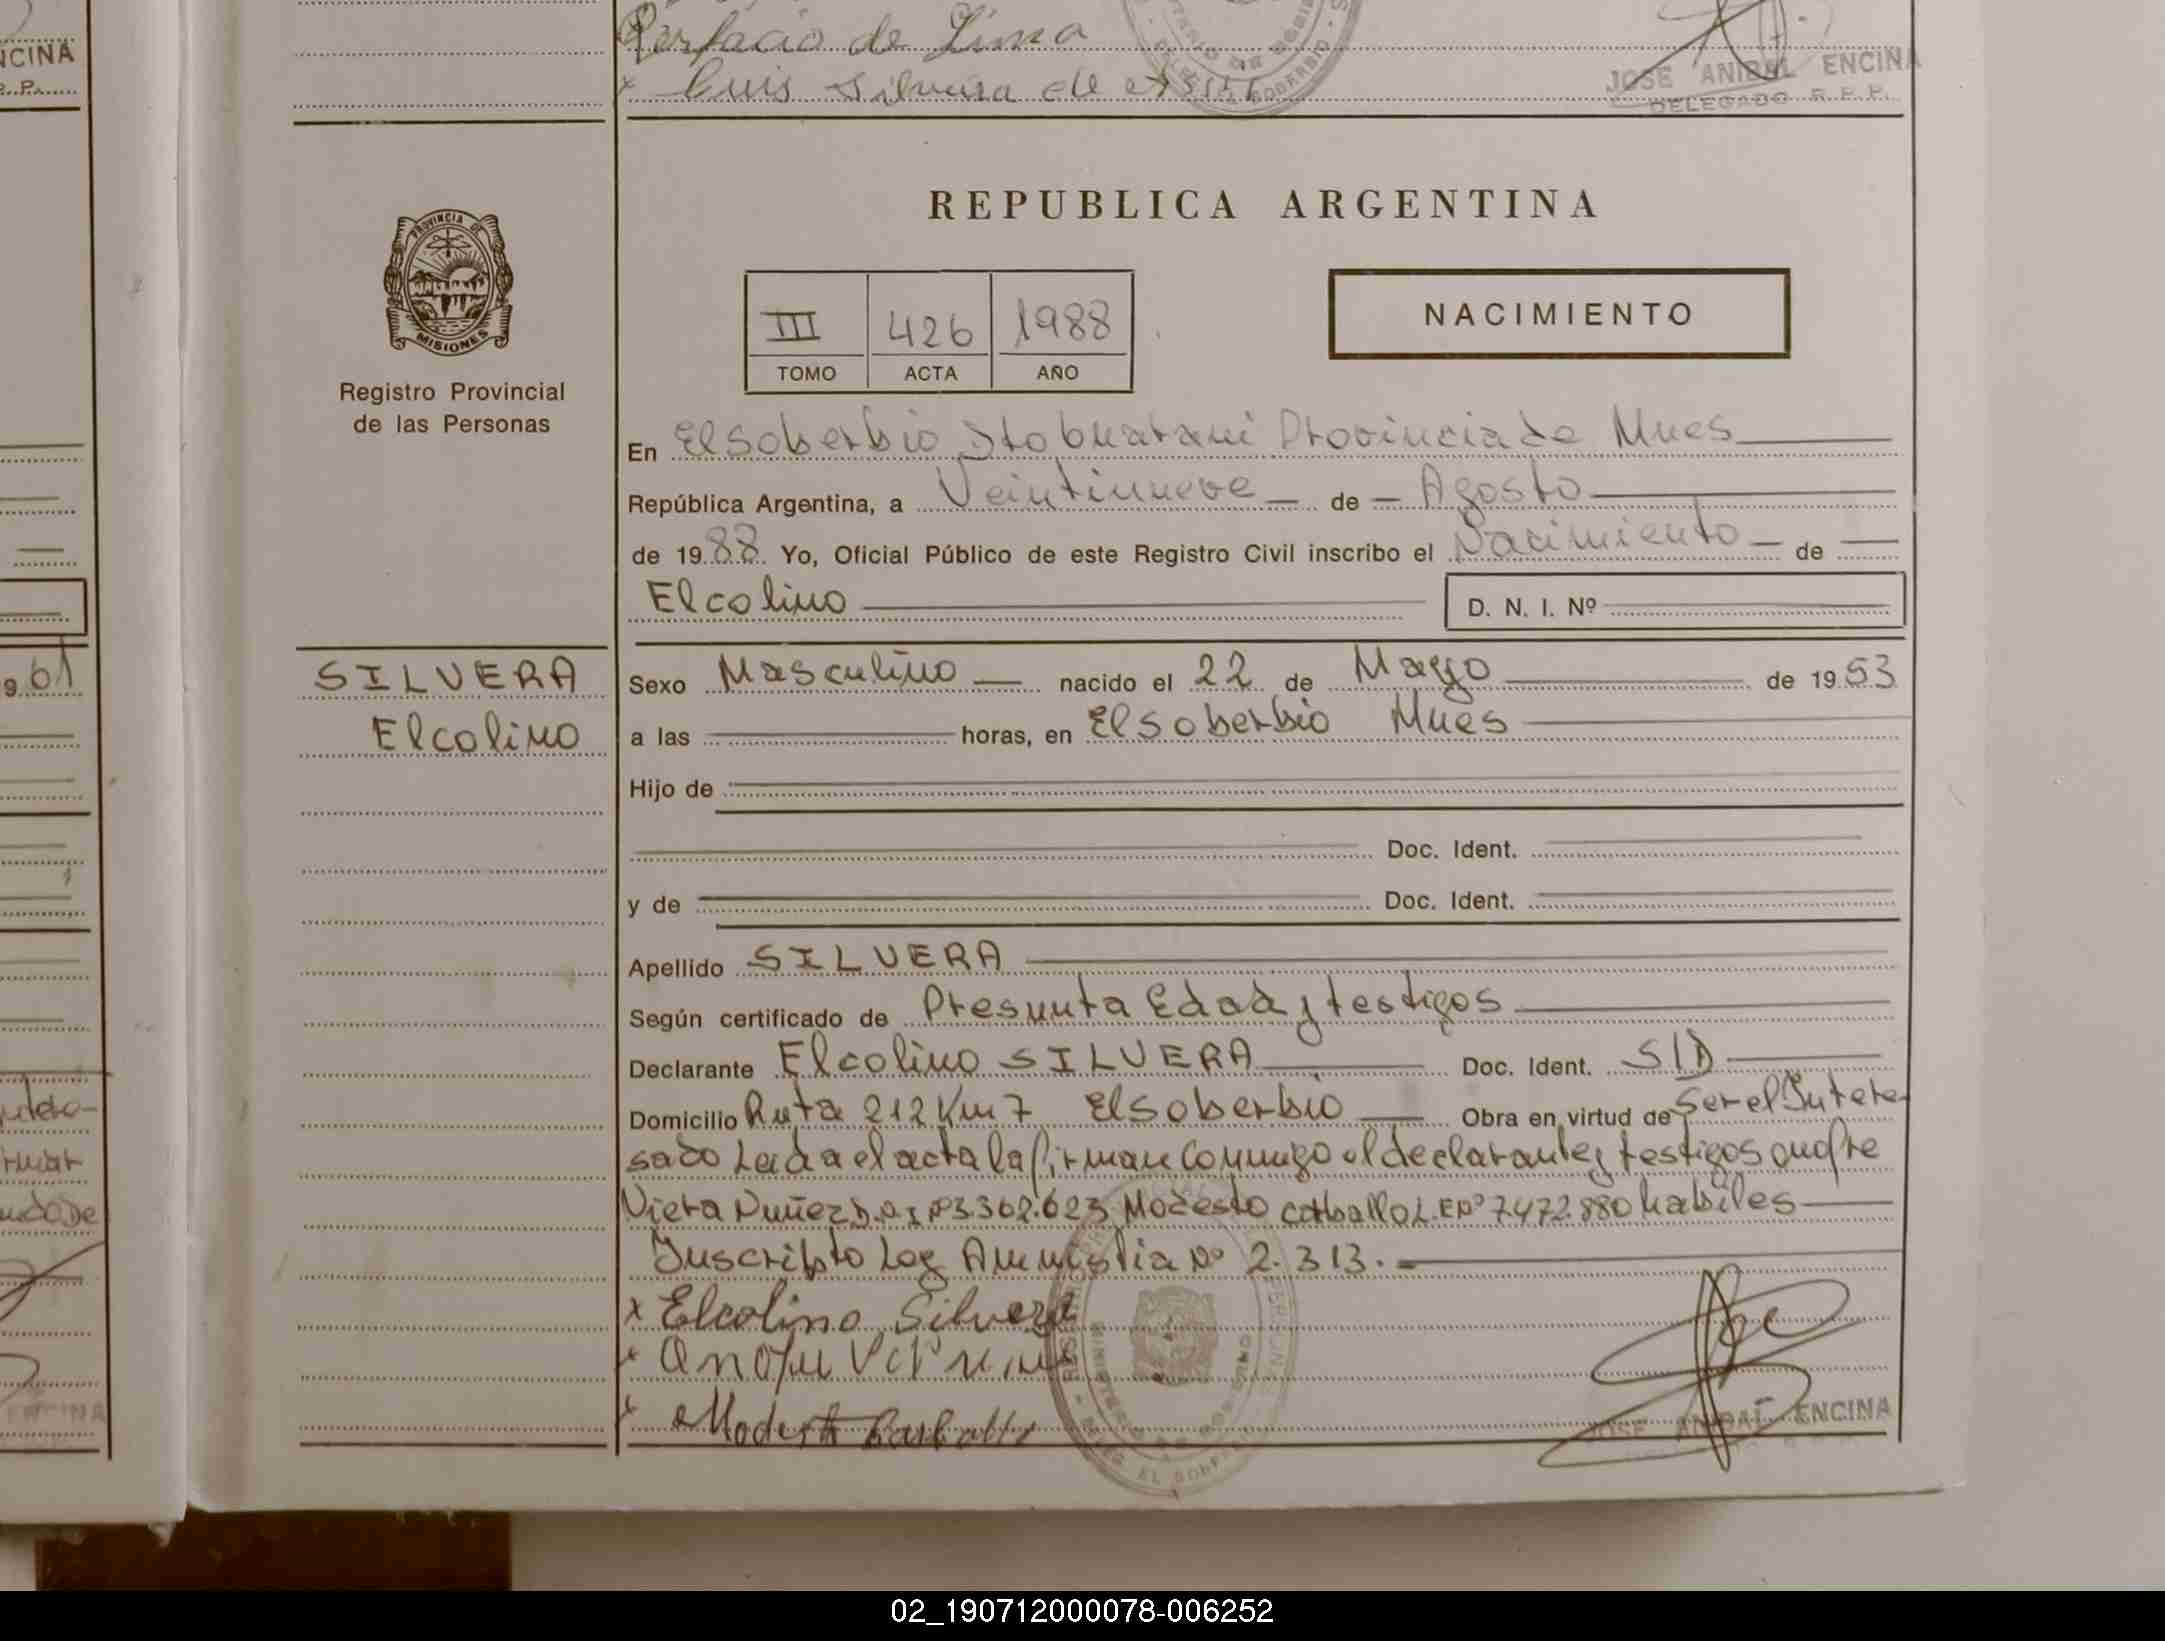 Luis Silveira de
JOSE ANIBAL ENCINA
DELEGADO R.P.P.
ENCINA
REPUBLICA ARGENTINA
PROVINCIA DE
MISIONES
Registro Provincial
de las Personas
III 426 1988
TOMO ACTA AÑO
NACIMIENTO
En El Soberbio Dto Guarani Provincia de Mnes
República Argentina, a Veintinueve de Agosto
de 1988 Yo, Oficial Público de este Registro Civil inscribo el Nacimiento de
Elcolino D. N. I. Nº
SILVERA
Elcolino
Sexo Masculino nacido el 22 de Mayo de 1953
a las horas, en El Soberbio Mnes
Hijo de
Doc. Ident.
y de Doc. Ident.
Apellido SILVERA
Según certificado de Presunta Edad y testigos
Declarante Elcolino SILVERA Doc. Ident. S/D
Domicilio Ruta 212 Km 7 El Soberbio Obra en virtud de Ser el Intere-
sado Leida el acta la firman conmigo el declarante y testigos Onofre
Viera Nuñez D.N.I Nº 3.362.623 Modesto Carballo L.E Nº 7.472.880 habiles
Inscripto Ley Amnistia Nº 2.313.
x Elcolino Silvera
x
x Modesto Carballo
JOSE ANIBAL ENCINA
02_190712000078-006252